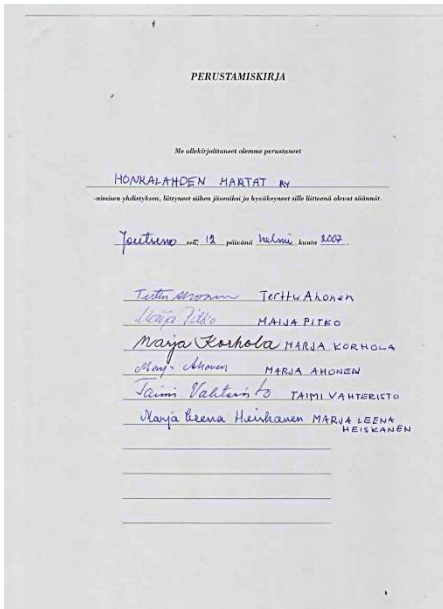 PERUSTAMISKIRJA
Me allekirjoittaneet olemme perustaneet
HONKALAHDEN MARTAT RY
-nimisen yhdistyksen, liittyneet siihen jäseniksi ja hyväksyneet sille liitteenä olevat säännöt.
Joutseno 12 päivänä helmi kuuta 2007.
Terttu Ahonen Terttu Ahonen
Maija Pitko MAIJA PITKO
Marja Korhola MARJA KORHOLA
Marja Ahonen MARJA AHONEN
Taimi Vahteristo TAIMI VAHTERISTO
Marja Leena Heiskanen MARJA LEENA
HEISKANEN